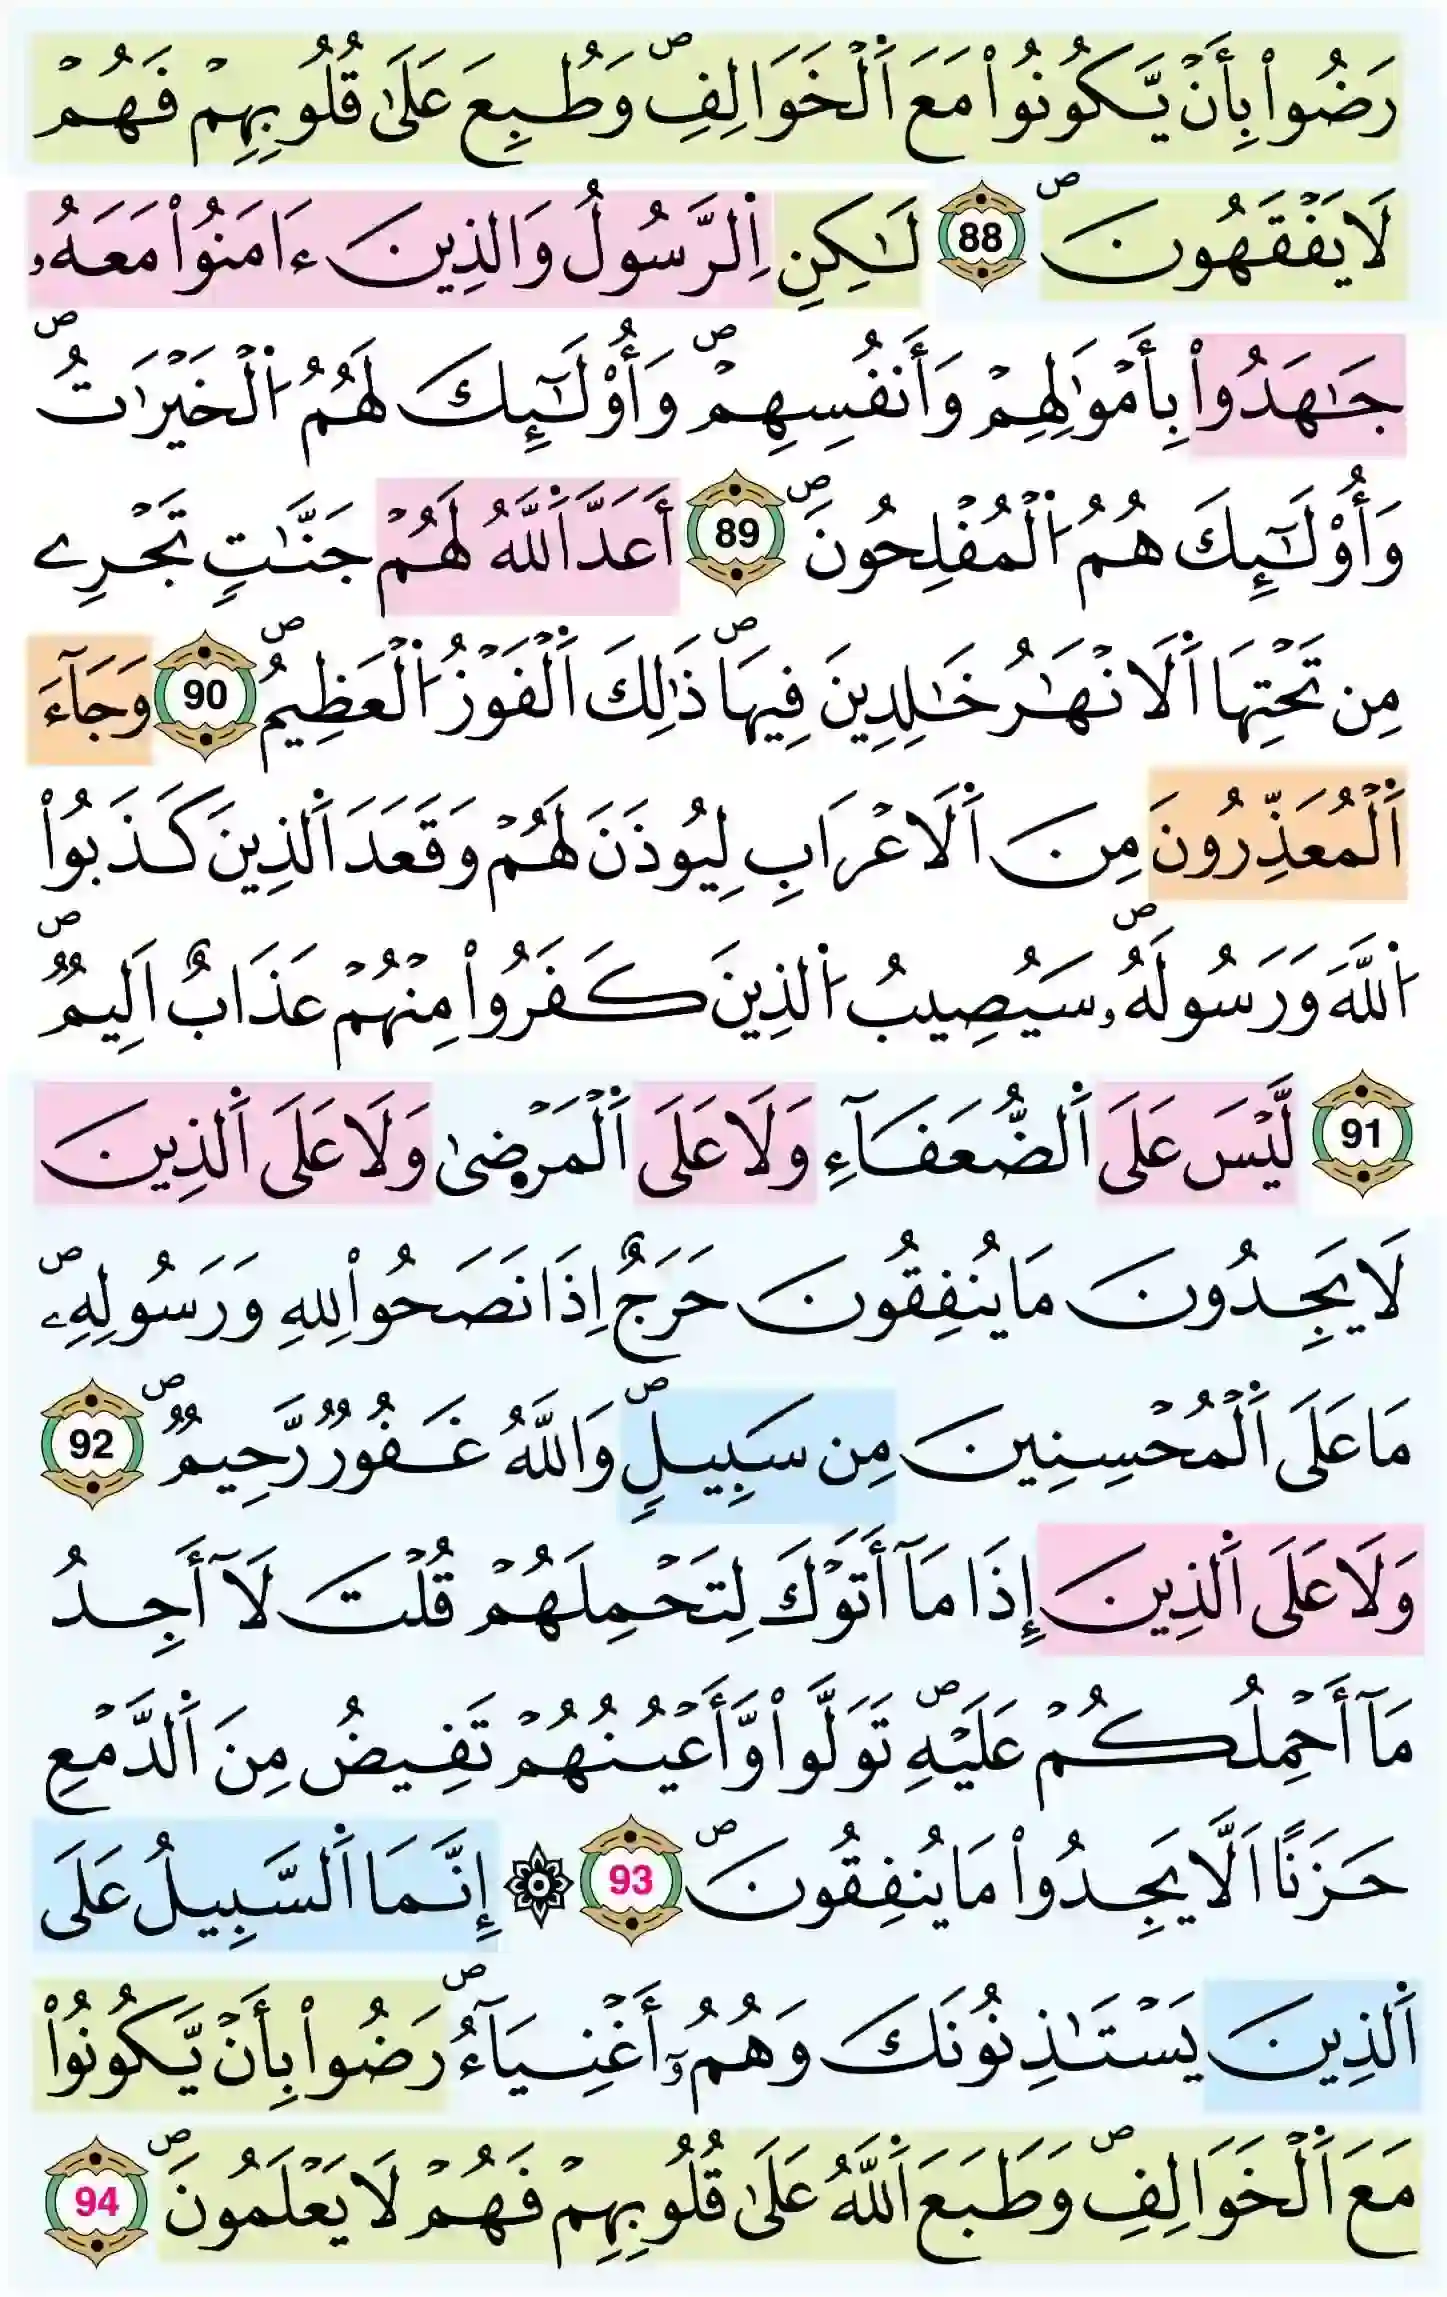 رَضُواْ بِأَنْ يَّكُونُواْ مَعَ اَ۬لْخَوَالِفِۖ وَطُبِعَ عَلَىٰ قُلُوبِهِمْ فَهُمْ
لَا يَفْقَهُونَۖ 88 لَٰكِنِ اِ۬لرَّسُولُ وَالذِينَ ءَامَنُواْ مَعَهُۥ
جَٰهَدُواْ بِأَمْوَٰلِهِمْ وَأَنفُسِهِمْۖ وَأُوْلَٰٓئِكَ لَهُمُ اُ۬لْخَيْرَٰتُۖ
وَأُوْلَٰٓئِكَ هُمُ اُ۬لْمُفْلِحُونَۖ 89 أَعَدَّ اَ۬للَّهُ لَهُمْ جَنَّٰتٍ تَجْرِے
مِن تَحْتِهَا اَ۬لَانْهَٰرُ خَٰلِدِينَ فِيهَاۖ ذَٰلِكَ اَ۬لْفَوْزُ اُ۬لْعَظِيمُۖ 90 وَجَآءَ
اَ۬لْمُعَذِّرُونَ مِنَ اَ۬لَاعْرَابِ لِيُوذَنَ لَهُمْ وَقَعَدَ اَ۬لذِينَ كَذَبُواْ
اُ۬للَّهَ وَرَسُولَهُۥۖ سَيُصِيبُ اُ۬لذِينَ كَفَرُواْ مِنْهُمْ عَذَابٌ اَلِيمٌۖ
91 لَّيْسَ عَلَى اَ۬لضُّعَفَآءِ وَلَا عَلَى اَ۬لْمَرْضۭىٰ وَلَا عَلَى اَ۬لذِينَ
لَا يَجِدُونَ مَا يُنفِقُونَ حَرَجٌ اِذَا نَصَحُواْ لِلهِ وَرَسُولِهِۦۖ
مَا عَلَى اَ۬لْمُحْسِنِينَ مِن سَبِيلٍۖ وَاللَّهُ غَفُورٌ رَّحِيمٌۖ 92
وَلَا عَلَى اَ۬لذِينَ إِذَا مَآ أَتَوْكَ لِتَحْمِلَهُمْ قُلْتَ لَآ أَجِدُ
مَآ أَحْمِلُكُمْ عَلَيْهِۖ تَوَلَّواْ وَّأَعْيُنُهُمْ تَفِيضُ مِنَ اَ۬لدَّمْعِ
حَزَنًا اَلَّا يَجِدُواْ مَا يُنفِقُونَۖ 93 ۞ إِنَّمَا اَ۬لسَّبِيلُ عَلَى
اَ۬لذِينَ يَسْتَٰذِنُونَكَ وَهُمُۥٓ أَغْنِيَآءُۖ رَضُواْ بِأَنْ يَّكُونُواْ
مَعَ اَ۬لْخَوَالِفِۖ وَطَبَعَ اَ۬للَّهُ عَلَىٰ قُلُوبِهِمْ فَهُمْ لَا يَعْلَمُونَۖ 94